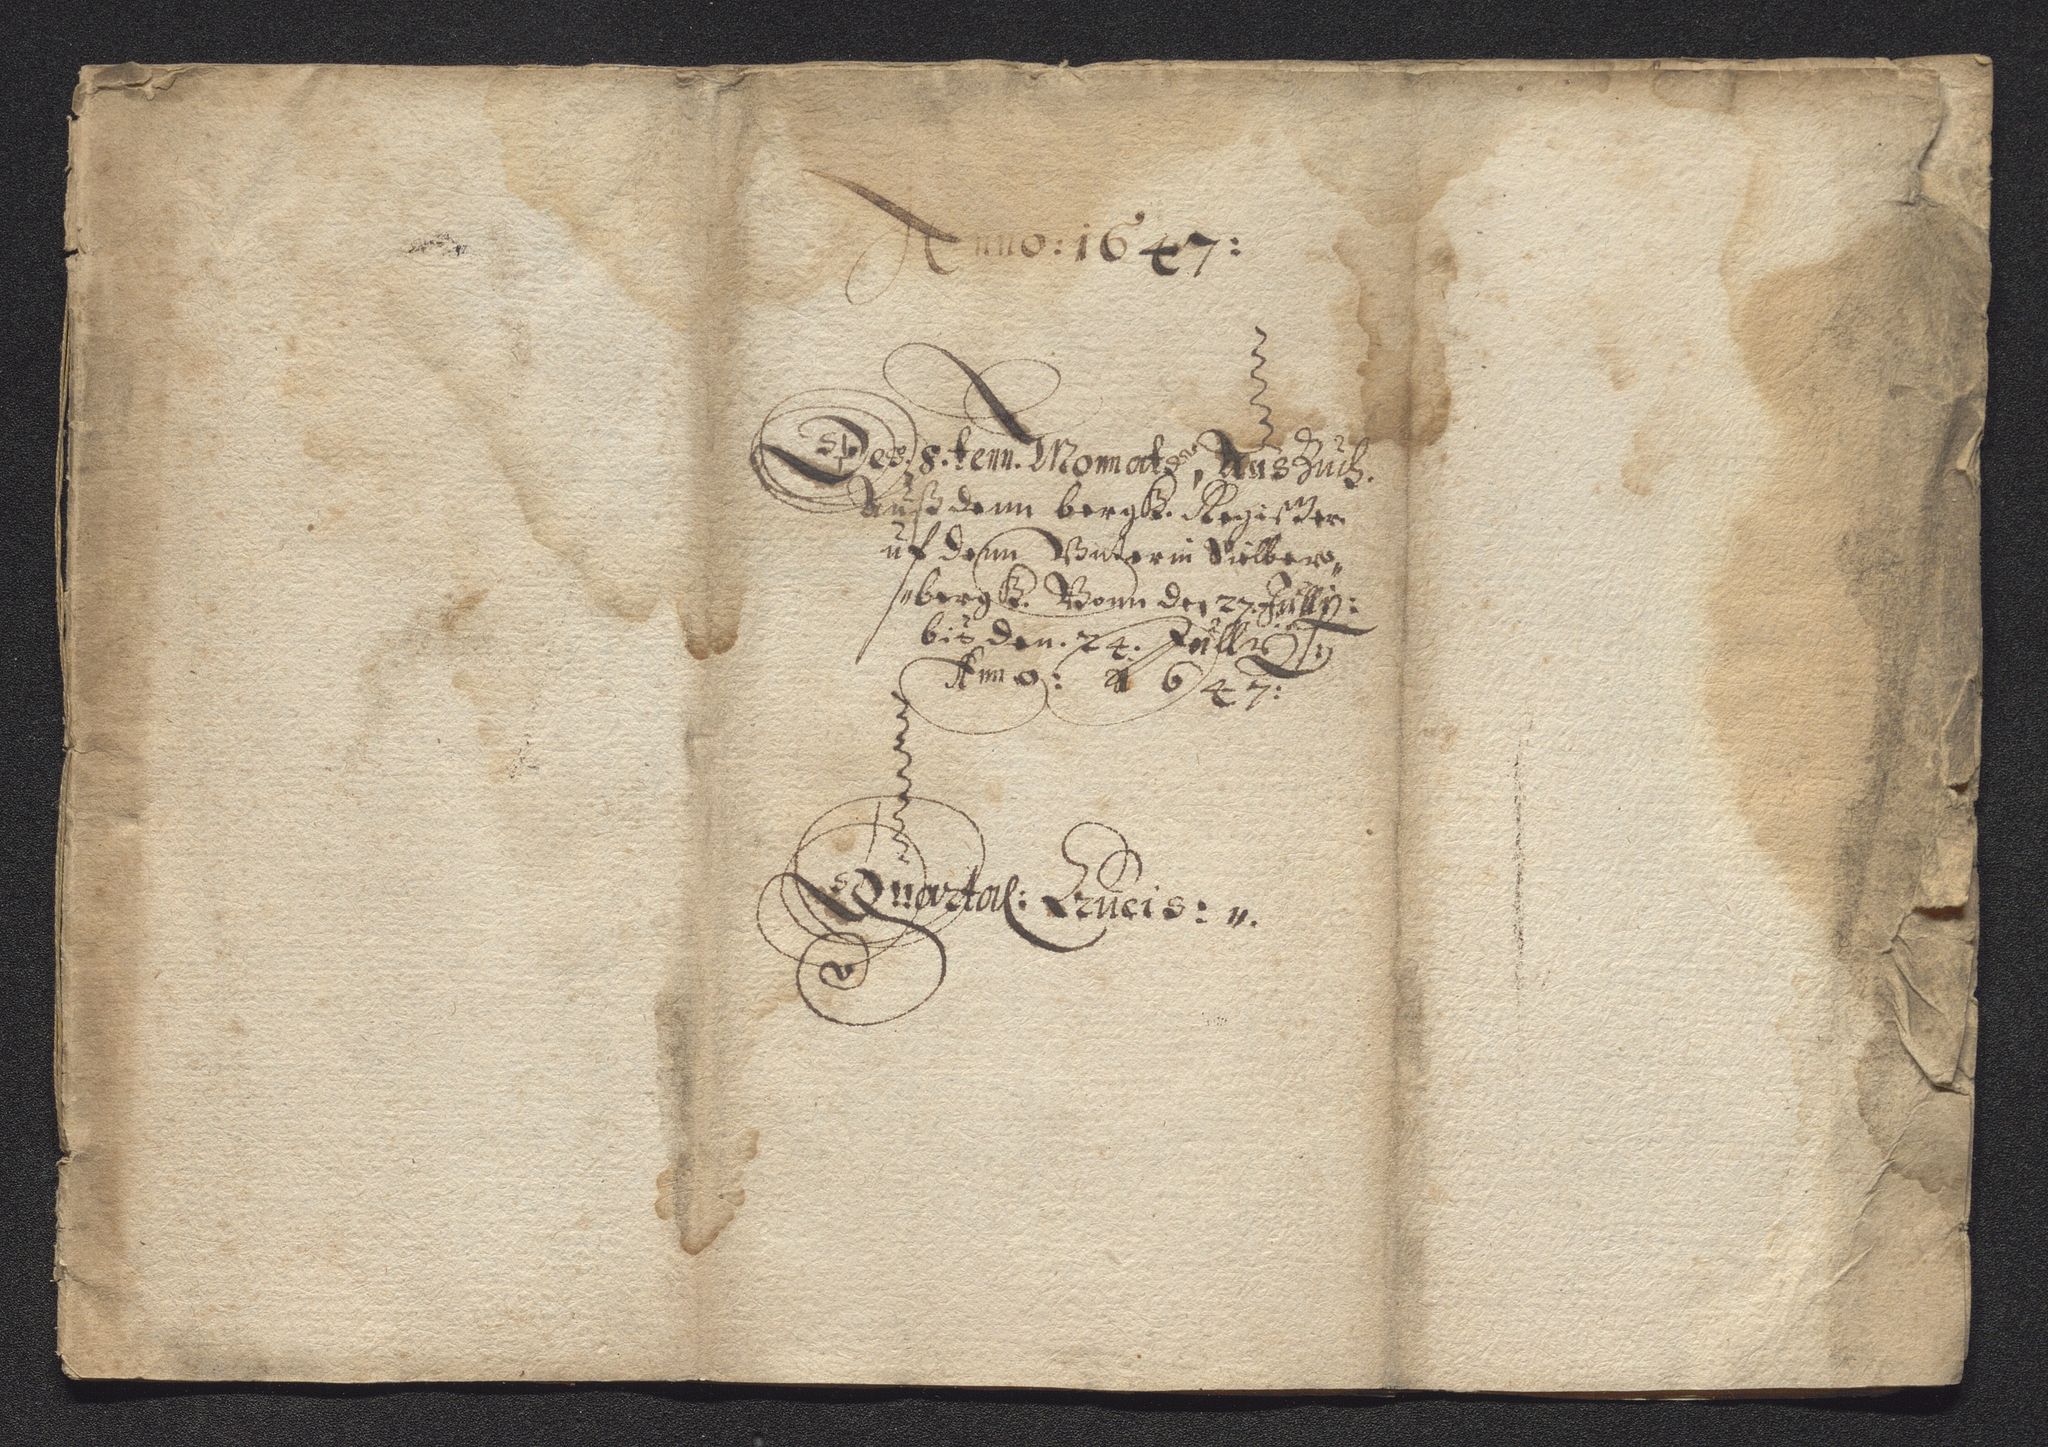 Anno: 1647:
Des. 8. tenn. Monnats, Auszuch.
Auß denn bergk. Register
uf denn Unterm Silber„
„bergk. Vonn de 27. Jully:
bis den. 24. Jully
Anno: 1647:
Quartal: Crucis: „.